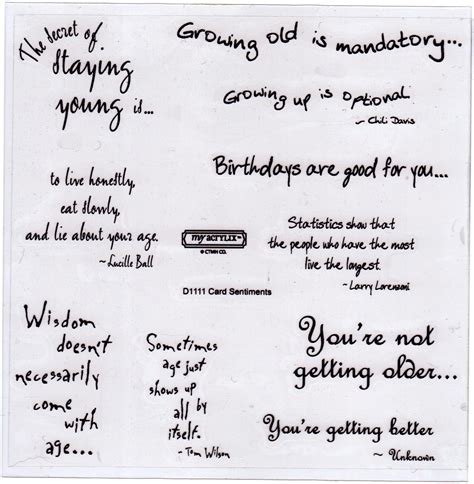 The Secret of
Staying
young is...
to live honestly,
eat slowly,
and lie about your age.
~Lucille Ball
Growing old is mandatory...
Growing up is optional.
~ Chili Davis
Birthdays are good for you...
Statistics show that
the people who have the most
live the longest.
~ Larry Lorenzoni
my ACRYLIX™
© CTMH CO.
D1111 Card Sentiments
Wisdom
doesn't
necessarily
come
with
age...
Sometimes
age just
shows up
all by
itself.
~ Tom Wilson
You're not
getting older...
You're getting better
~ Unknown